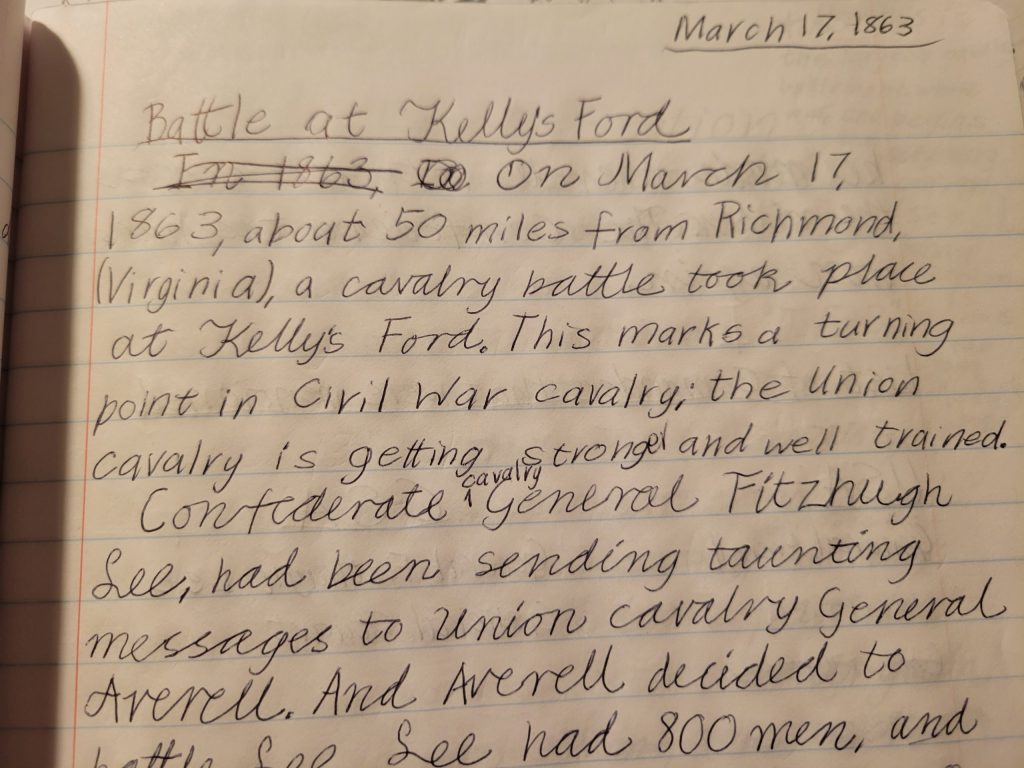 March 17, 1863
Battle at Kelly's Ford
In 1863, On March 17,
1863, about 50 miles from Richmond,
(Virginia), a cavalry battle took place
at Kelly's Ford. This marks a turning
point in Civil War cavalry; the Union
cavalry is getting strong and well trained.
cavalry
Confederate ^ General Fitzhugh
Lee, had been sending taunting
messages to Union cavalry General
Averell. And Averell decided to
battle Lee. Lee had 800 men, and